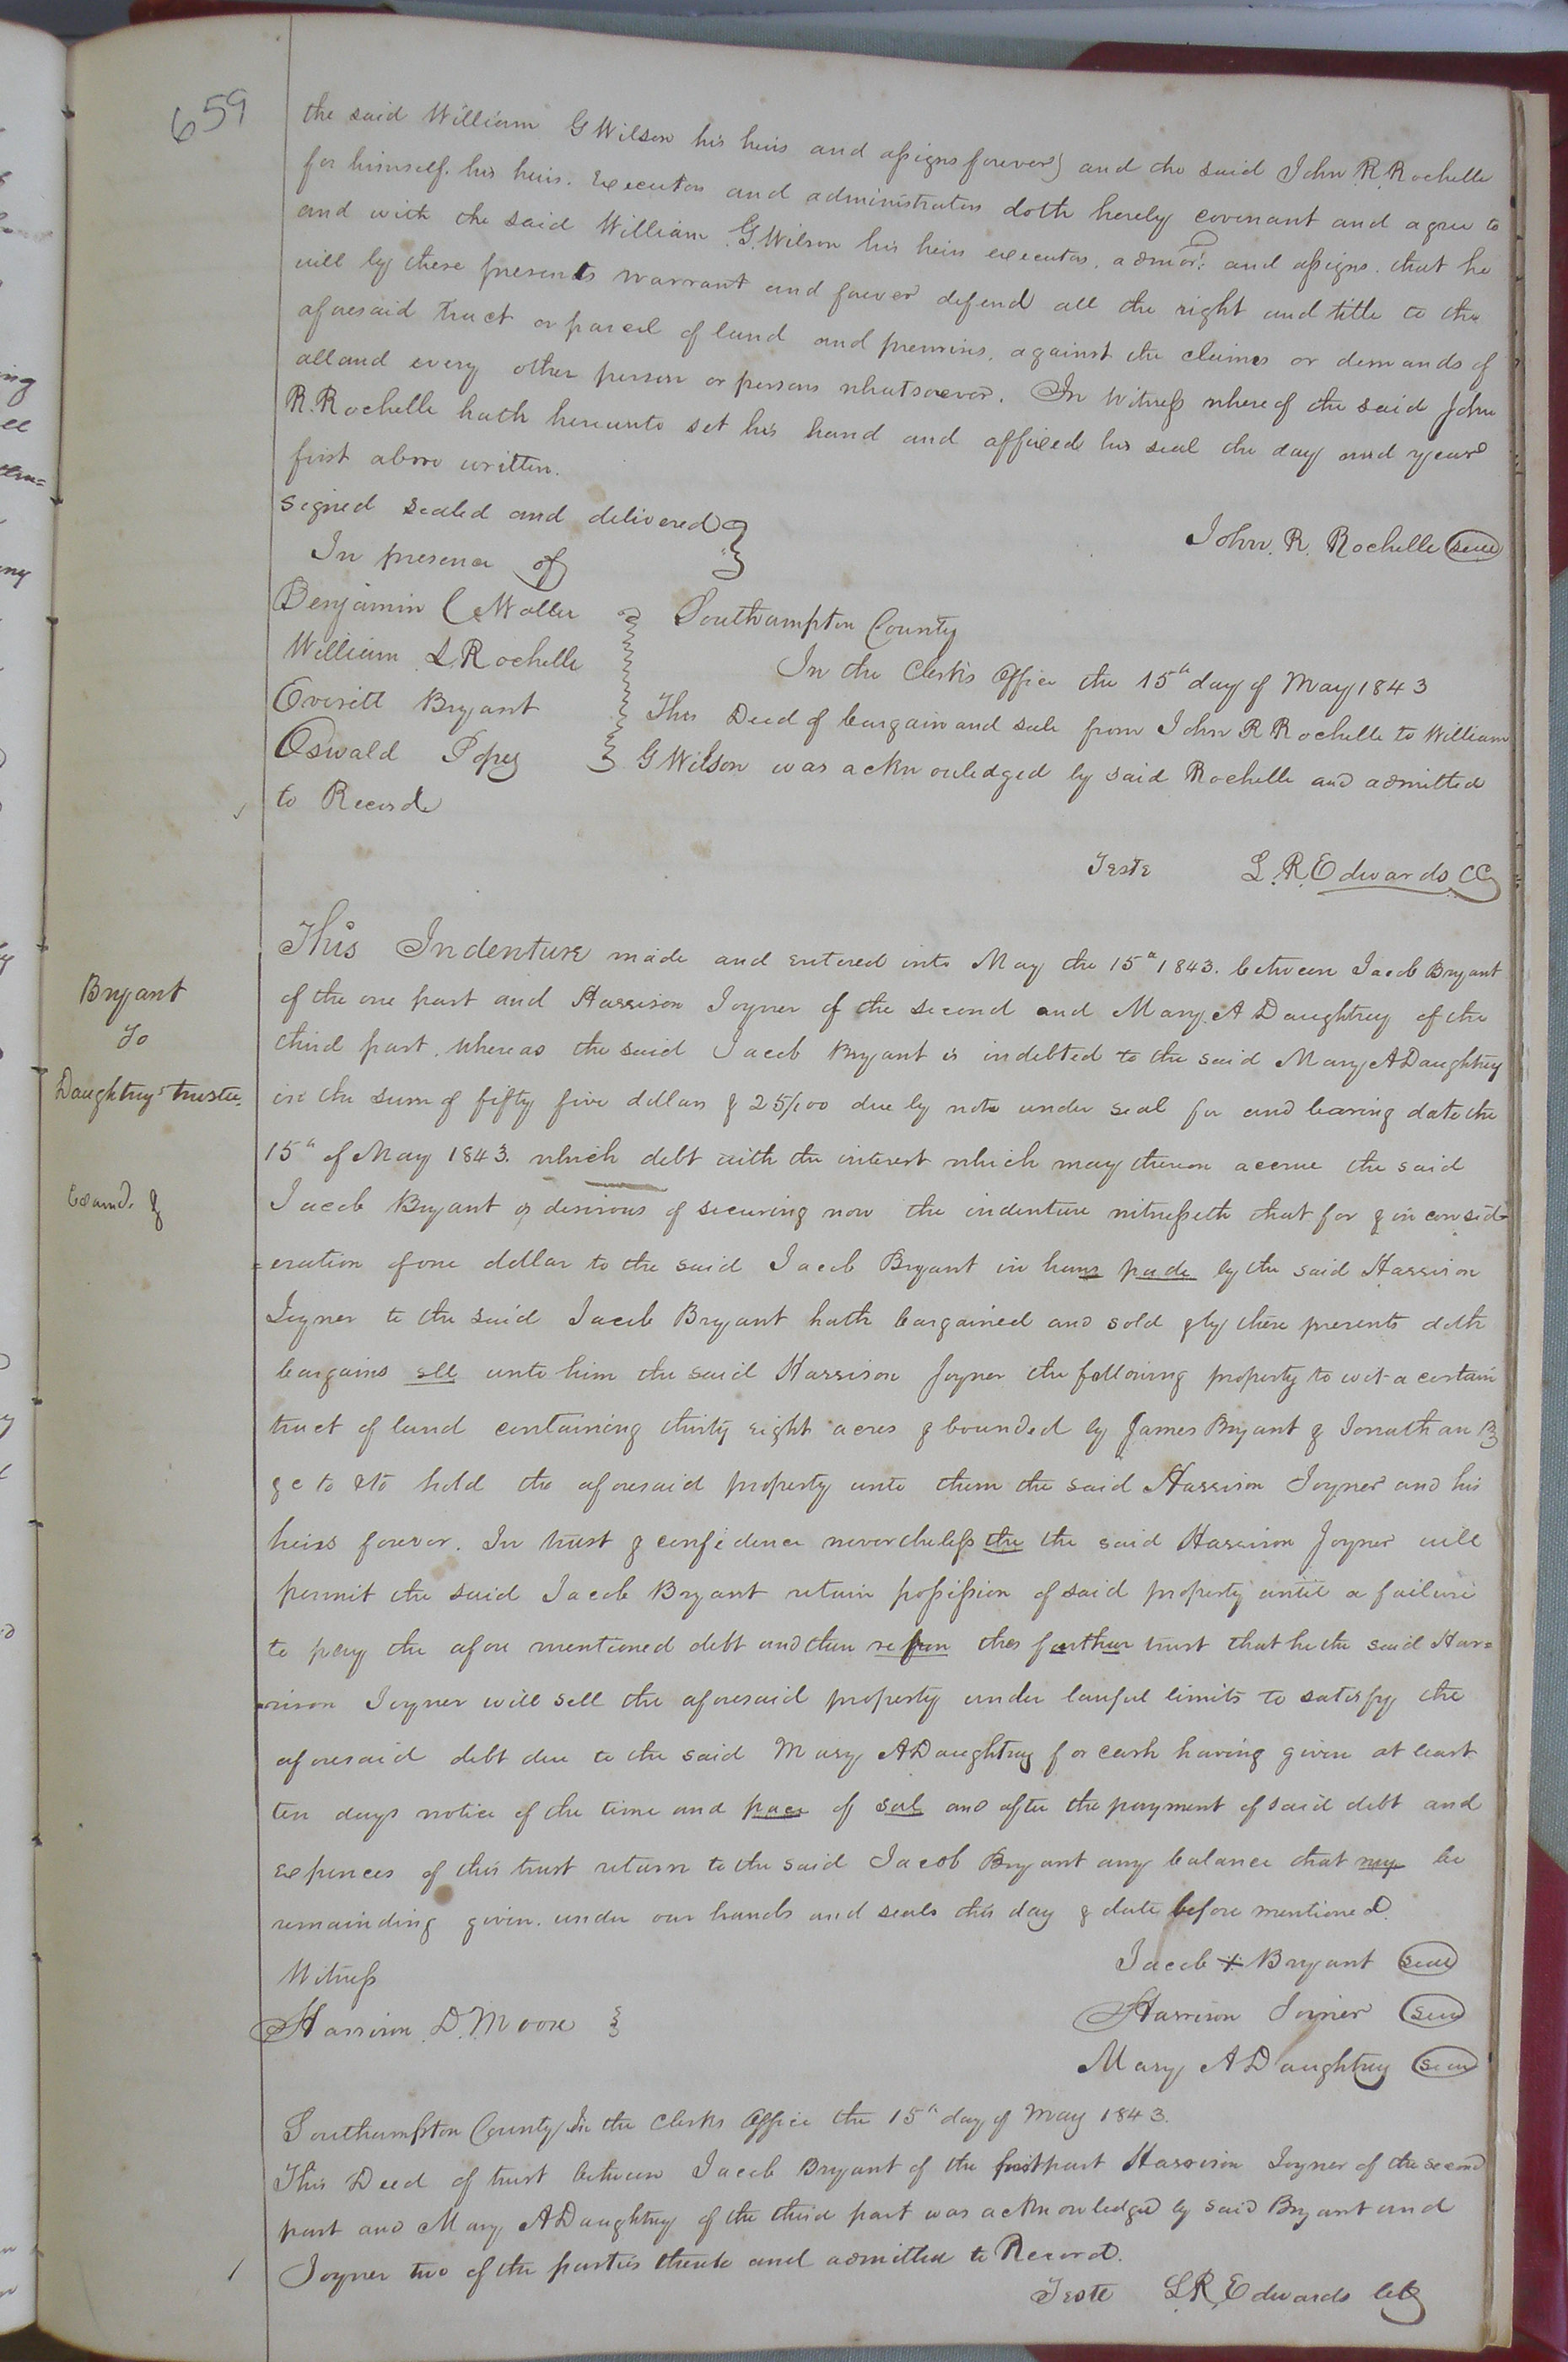 659
the said William G Wilson his heirs and assigns forever) and the said John R. Rochelle
for himself. his heirs. Executors and administrators doth hereby covenant and agree to
and with the said William G. Wilson his heirs executors, admors: and assigns. that he
will by these presents warrant and forever defend all the right and title to the
aforesaid tract or parcel of land and premises, against the claims or demands of
all and every other person or persons whatsoever. In Witness whereof the said John
R. Rochelle hath hereunto set his hand and affixed his seal the day and year
first above written.
signed sealed and delivered
In presence of
John. R. Rochelle seal
Benjamin C Waller
William L. Rochelle
Everitt Bryant
Oswald Pope
Southampton County
In the Clerks Office the 15th day of May 1843
This Deed of bargain and sale from John R Rochelle to William
G Wilson was acknowledged by said Rochelle and admitted
to Record
Teste L. R. Edwards CC
Bryant
To
Daughtry's trustee.
Examd. &
This Indenture made and entered into May the 15th 1843. between Jacob Bryant
of the one part and Harrison Joyner of the second and Mary. A Daughtrey of the
third part. Whereas the said Jacob Bryant is indebted to the said Mary A Daughtrey
in the sum of fifty five dollars & 25/100 due by note under seal for and bearing date the
15th of May 1843. which debt with the interest which may thereon accrue the said
Jacob Bryant is desirous of securing now the indenture witnesseth that for & in consid-
=eration of one dollar to the said Jacob Bryant in hand pade by the said Harrison
Joyner to the said Jacob Bryant hath bargained and sold & by these presents doth
bargains sell unto him the said Harrison Joyner the following property to wit a certain
tract of land containing thirty eight acres & bounded by James Bryant & Jonathan B
&c to & to hold the aforesaid property unto them the said Harrison Joyner and his
heirs forever. In trust & confidence nevertheless the the said Harrison Joyner will
permit the said Jacob Bryant retain possession of said property until a failure
to pay the afore mentioned debt and then this further trust that he the said Har=
=rison Joyner will sell the aforesaid property under lawful limits to satisfy the
aforesaid debt due to the said Mary A Daughtrey for cash having given at least
ten days notice of the time and pace of sal and after the payment of said debt and
expences of this trust return to the said Jacob Bryant any balance that may be
remainding given. under our hands and seals this day & date before mentioned.
Witness
Harrison D. Moore
Jacob + Bryant seal
Harrison Joyner seal
Mary A Daughtrey seal
Southampton County In the Clerks Office the 15th day of May 1843.
This Deed of trust between Jacob Bryant of the first part Harrison Joyner of the second
part and Mary A Daughtrey of the third part was acknowledged by said Bryant and
Joyner two of the parties thereto and admitted to Record.
Teste L. R. Edwards clk